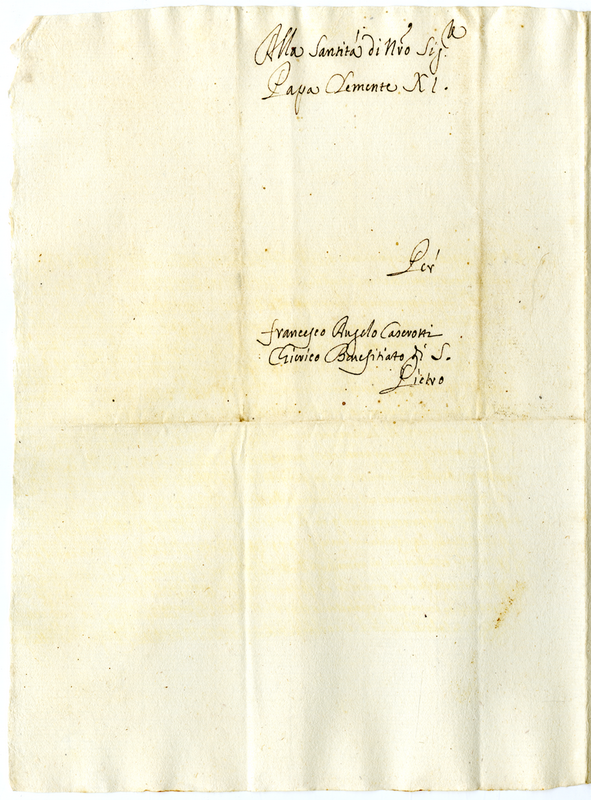 Alla Santità di Nro Sig.re
Papa Clemente XI.
Per
Francesco Angelo Caserotti
Chierico Benefitiato di S.
Pietro